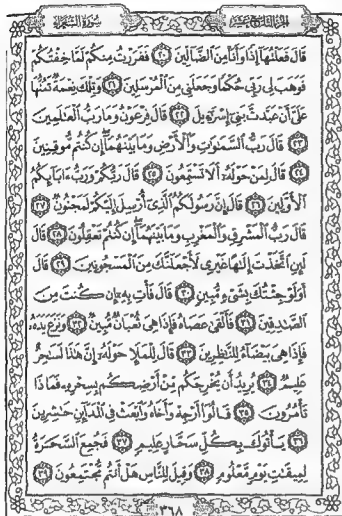 الجزء التاسع عشر
سورة الشعراء
قَالَ فَعَلْتُهَا إِذًا وَأَنَا مِنَ الضَّالِّينَ ٢٠ فَفَرَرْتُ مِنكُمْ لَمَّا خِفْتُكُمْ
فَوَهَبَ لِي رَبِّي حُكْمًا وَجَعَلَنِي مِنَ الْمُرْسَلِينَ ٢١ وَتِلْكَ نِعْمَةٌ تَمُنُّهَا
عَلَيَّ أَنْ عَبَّدتَّ بَنِي إِسْرَٰٓءِيلَ ٢٢ قَالَ فِرْعَوْنُ وَمَا رَبُّ الْعَٰلَمِينَ
٢٣ قَالَ رَبُّ السَّمَٰوَٰتِ وَالْأَرْضِ وَمَا بَيْنَهُمَا إِن كُنتُم مُّوقِنِينَ
٢٤ قَالَ لِمَنْ حَوْلَهُ أَلَا تَسْتَمِعُونَ ٢٥ قَالَ رَبُّكُمْ وَرَبُّ ءَابَآئِكُمُ
الْأَوَّلِينَ ٢٦ قَالَ إِنَّ رَسُولَكُمُ الَّذِي أُرْسِلَ إِلَيْكُمْ لَمَجْنُونٌ ٢٧
قَالَ رَبُّ الْمَشْرِقِ وَالْمَغْرِبِ وَمَا بَيْنَهُمَا إِن كُنتُمْ تَعْقِلُونَ ٢٨ قَالَ
لَئِنِ اتَّخَذْتَ إِلَٰهًا غَيْرِي لَأَجْعَلَنَّكَ مِنَ الْمَسْجُونِينَ ٢٩ قَالَ
أَوَلَوْ جِئْتُكَ بِشَيْءٍ مُّبِينٍ ٣٠ قَالَ فَأْتِ بِهِ إِن كُنتَ مِنَ
الصَّٰدِقِينَ ٣١ فَأَلْقَىٰ عَصَاهُ فَإِذَا هِيَ ثُعْبَانٌ مُّبِينٌ ٣٢ وَنَزَعَ يَدَهُ
فَإِذَا هِيَ بَيْضَآءُ لِلنَّٰظِرِينَ ٣٣ قَالَ لِلْمَلَإِ حَوْلَهُ إِنَّ هَٰذَا لَسَٰحِرٌ
عَلِيمٌ ٣٤ يُرِيدُ أَن يُخْرِجَكُم مِّنْ أَرْضِكُم بِسِحْرِهِ فَمَاذَا
تَأْمُرُونَ ٣٥ قَالُوا أَرْجِهْ وَأَخَاهُ وَابْعَثْ فِي الْمَدَآئِنِ حَٰشِرِينَ
٣٦ يَأْتُوكَ بِكُلِّ سَحَّارٍ عَلِيمٍ ٣٧ فَجُمِعَ السَّحَرَةُ
لِمِيقَٰتِ يَوْمٍ مَّعْلُومٍ ٣٨ وَقِيلَ لِلنَّاسِ هَلْ أَنتُم مُّجْتَمِعُونَ ٣٩
٣٦٨